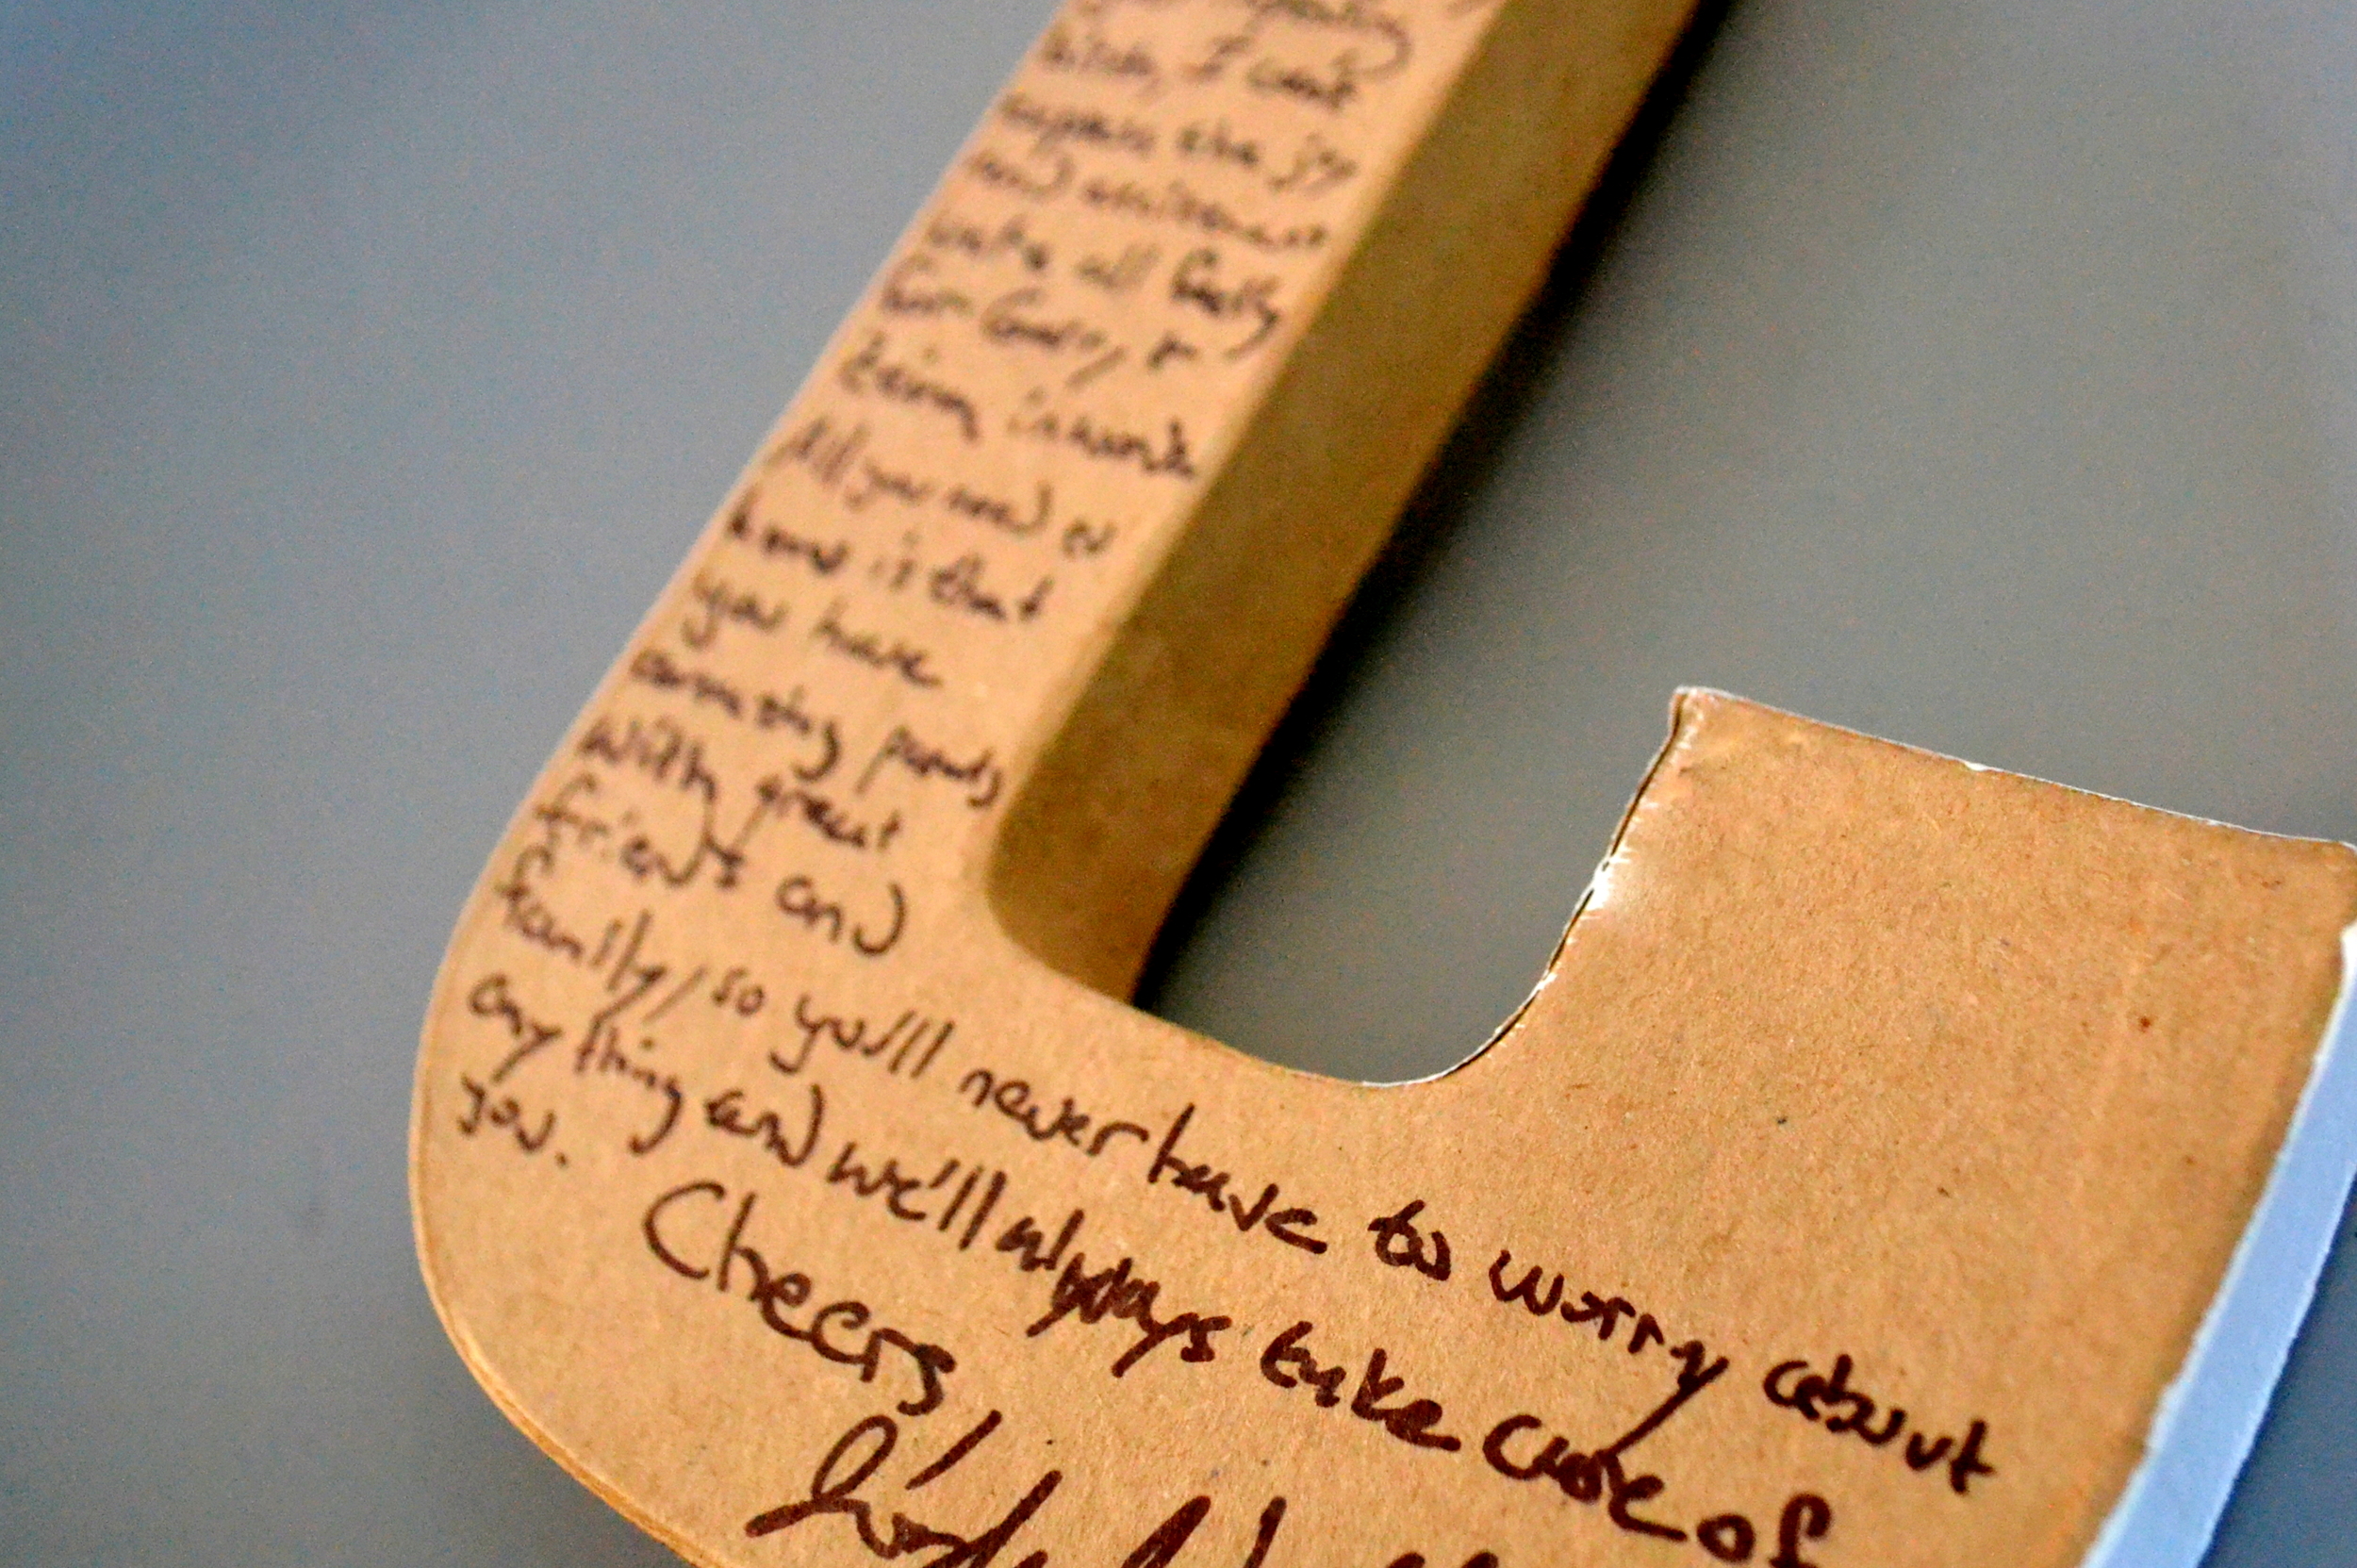 I can't
express the joy
and excitement
we're all feeling
for
All you need to
know is that
you have
amazing parents
with great
friends and
family, so you'll never have to worry about
anything and we'll always take care of
you.
Cheers,